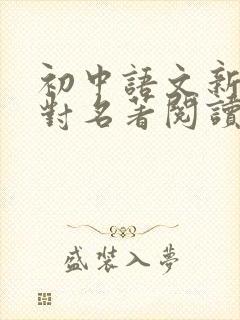 初中語文新
對名著閱讀
盛裝入夢